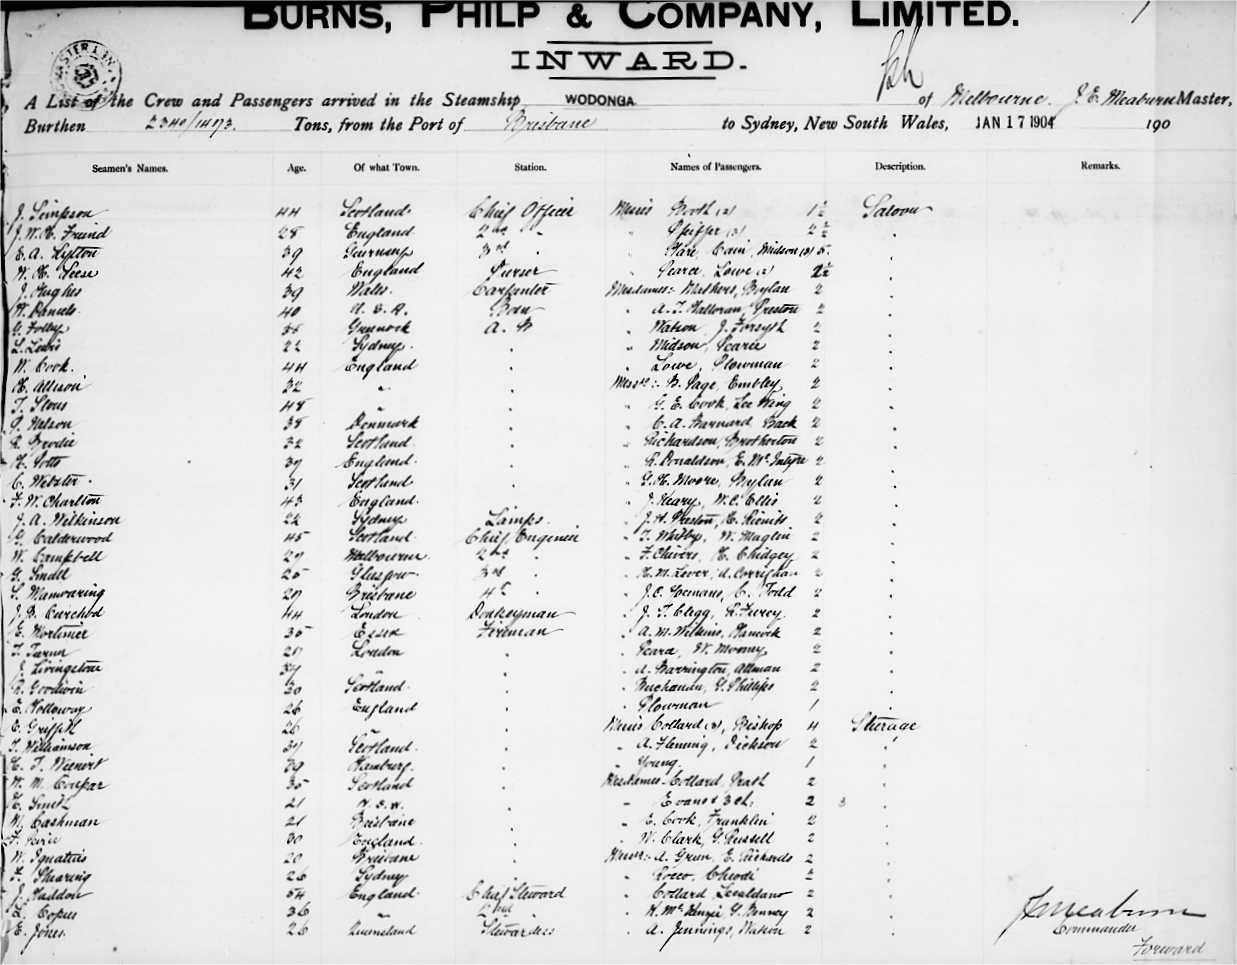 BURNS, PHILP & COMPANY, LIMITED.
INWARD.
A List of the Crew and Passengers arrived in the Steamship WODONGA of Melbourne. J. E. Meaburn Master,
Burthen 2340/1473. Tons, from the Port of Brisbane to Sydney, New South Wales, JAN 17 1904 190
Seamen's Names. Age. Of what Town. Station. Names of Passengers. Description. Remarks.
J. Simpson 44 Scotland Chief Officer Misses Booth (2) 1½ Saloon
J. W. H. Freund 28 England 2nd " " Pfeiffer (3) 2½
E. A. Lytton 39 Guernsey 3rd " " Hare, Cain, Midson (3) 5
W. H. Leese 42 England Purser " Pearce, Lowe (2) 2½
J. Hughes 39 Wales Carpenter Mesdames:- Mathers, Boylan 2
W. Daniels 40 U. S. A. Bosn " A. T. Halloran, Preston 2
G. Folley 35 Greenock A. B " Watson, J. Forsyth 2
L. Lewis 22 Sydney " Midson, Pearce 2
W. Cook. 44 England " Lowe, Plowman 2
H. Allison 32 " Messrs:- B. Page, Embley 2
T. Slous 48 " " G. E. Cook, Lee Wing 2
P. Nelson 38 Denmark " C. A. Barnard, Back 2
R. Brodie 32 Scotland " Richardson, Brotherton 2
H. Potts 39 England " R. Donaldson, E. McIntyre 2
C. Webster 31 Scotland " G. H. Moore, Boylan 2
F. W. Charlton 43 England " J. Heary, W. C. Ellis 2
J. A. Wilkinson 22 Sydney Lamps " J. H. Preston, H. 2
Calderwood 45 Scotland Chief Engineer " T. Whitby, W. Maglin 2
W. Campbell 29 Melbourne 2nd " " F. Chivers, H. Chidgey 2
G. Small 25 Glasgow 3rd " " H. M. Lever, A. Corrighan 2
S. Manwaring 29 Brisbane 4th " " J. C. Yeomans, C. Todd 2
J. B. Curchod 44 London Donkeyman " J. T. Clegg, R. Furcy 2
E. Mortimer 35 Essex Fireman " A. M. Wilkins, Hancock 2
T. Turner 21 London " Peard, W. Mooney 2
J. Livingstone 39 " " A. Barrington, Allman 2
R. Goodwin 30 Scotland " Buchanan, G. Phillips 2
E. Holloway 26 England " Plowman 1
E. Griffith 26 " Misses Collard (3), Bishop 4 Steerage
T. Williamson 39 Scotland " A. Fleming, Dickson 2
H. T. 39 Hamburg " Young 1
W. M. Coupar 35 Scotland Mesdames Collard, Grath 2
H. Smith 21 N. S. W. " Evans & 3 ch. 2 3
M. Cashman 21 Brisbane " E. Cook, Franklin 2
F. 30 England " W. Clark, G. Russell 2
W. Ignatius 20 Brisbane Messrs:- A. Green, E. Richards 2
F. Shearing 26 Sydney " Rocco, Chiodi 2
J. Haddon 54 England Chief Steward " Collard, 2
L. Copus 36 " 2nd " H. McKenzie, G. Benney 2
E. Jones 26 Queensland Stewardess " A. Jennings, Watson 2
J. E. Meaburn
Commander
Forward